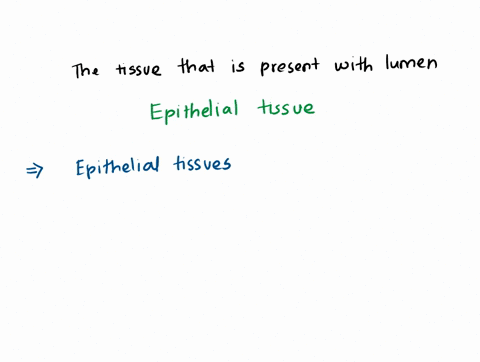 The tissue that is present with lumen
Epithelial tissue
⇒ Epithelial tissues